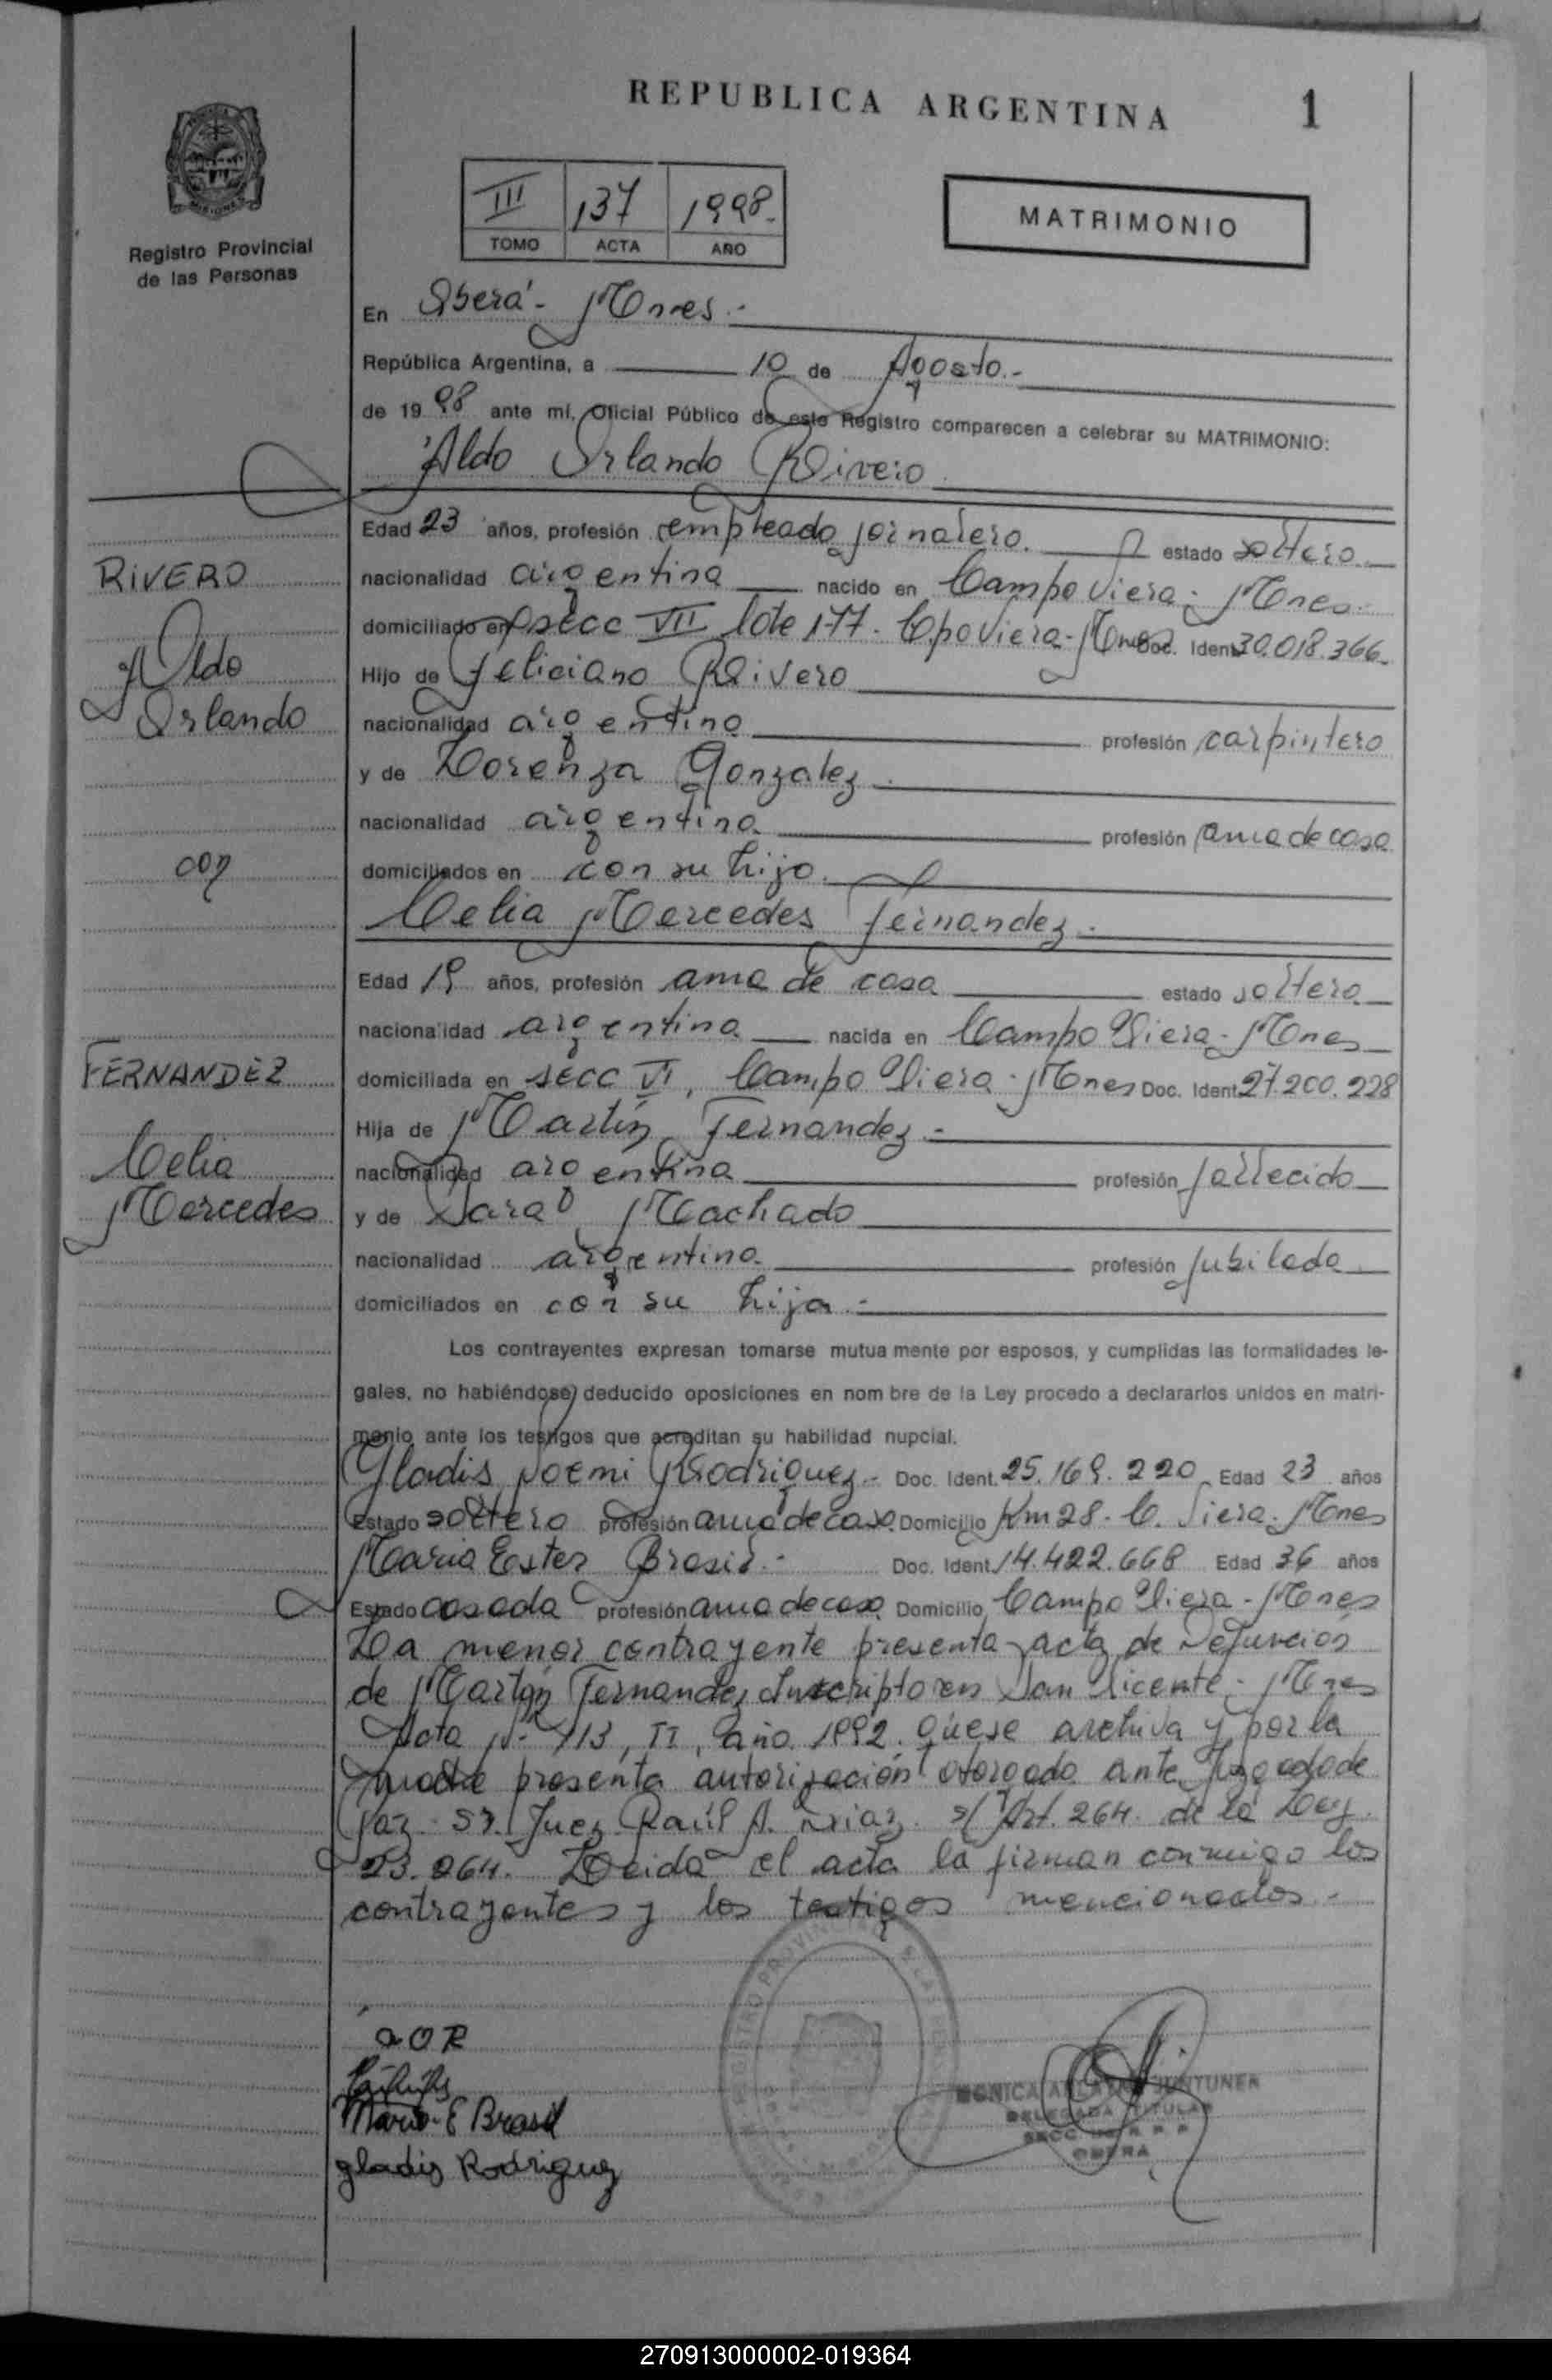 REPUBLICA ARGENTINA 1
Registro Provincial
de las Personas
III 137 1998.-
TOMO ACTA AÑO
MATRIMONIO
En Oberá - Mnes.-
República Argentina, a 10 de Agosto.-
de 19 98 ante mí, Oficial Público de este Registro comparecen a celebrar su MATRIMONIO:
Aldo Orlando Rivero
Edad 23 años, profesión empleado jornalero. estado soltero
nacionalidad argentina nacido en Campo Viera - Mnes.
domiciliado en secc VII lote 177. Cpo Viera - Mnes Doc. Ident. 30.018.366.
Hijo de Feliciano Rivero
nacionalidad argentina profesión carpintero
y de Lorenza Gonzalez
nacionalidad argentina profesión ama de casa
domiciliados en con su hijo.
Celia Mercedes Fernandez.-
Edad 19 años, profesión ama de casa estado soltera
nacionalidad argentina nacida en Campo Viera - Mnes
domiciliada en secc VI, Campo Viera - Mnes Doc. Ident. 27.200.228
Hija de Martín Fernandez.-
nacionalidad argentina profesión fallecido
y de Sara Machado
nacionalidad argentina profesión Jubilada
domiciliados en con su hija.-
RIVERO
Aldo
Orlando
con
FERNANDEZ
Celia
Mercedes
Los contrayentes expresan tomarse mutua mente por esposos, y cumplidas las formalidades le-
gales, no habiéndose deducido oposiciones en nom bre de la Ley procedo a declararlos unidos en matri-
monio ante los testigos que acreditan su habilidad nupcial.
Gladis Noemi Rodriguez.- Doc. Ident. 25.169.220 Edad 23 años
Estado soltera profesión ama de casa Domicilio Km 28 - C. Viera - Mnes
Maria Ester Brasil.- Doc. Ident. 14.422.668 Edad 36 años
Estado casada profesión ama de casa Domicilio Campo Viera - Mnes
La menor contrayente presenta acta de Defunción
de Martín Fernandez Inscripto en San Vicente - Mnes
Acta Nº 113, II, año 1992. Que se archiva y por la
madre presenta autorización otorgada ante Juzgado de
Paz - Sr. Juez Raúl A. Diaz. s/ Art. 264. de la Ley
23.264. Leida el acta la firman conmigo los
contrayentes y los testigos mencionados.-
a O R
Maria E Brasil
gladis Rodriguez
DELEGADA TITULAR
OBERA
270913000002-019364